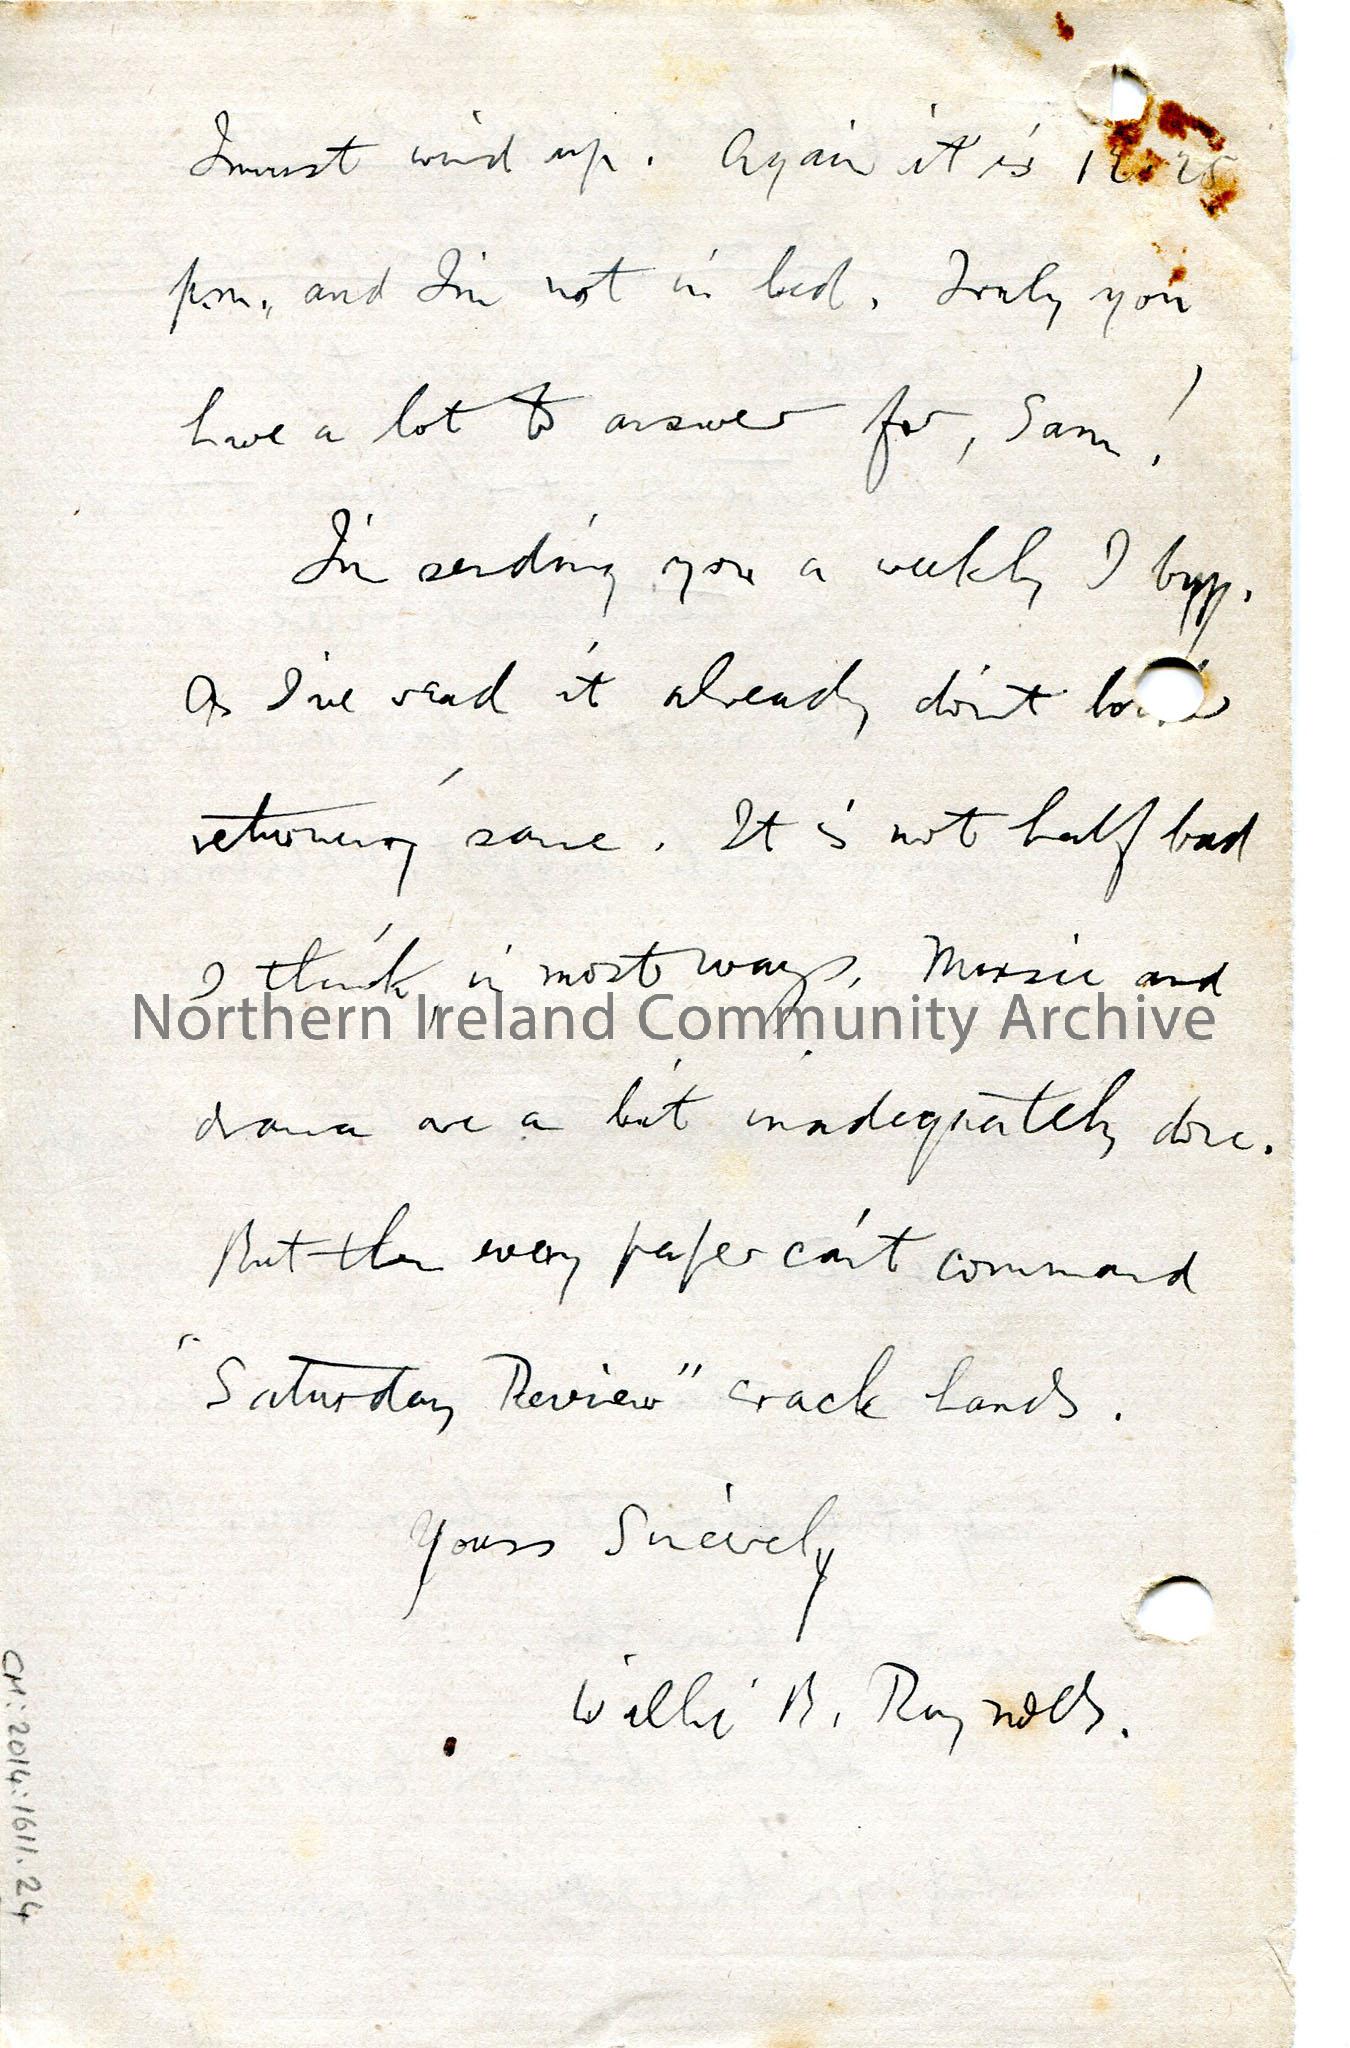 I must wind up. Again it is 12.25
p.m., and I'm not in bed. Truly you
have a lot to answer for, Sam!
I'm sending you a weekly I buy.
As I've read it already don't
returning same. It is not half bad
I think, in most ways. Music and
Northern Ireland Community Archive
drama are a bit inadequately done.
But then every paper can't command
"Saturday Review" crack hands.
Yours Sincerely
Willie B. Reynolds.
CM:2014:1611.24